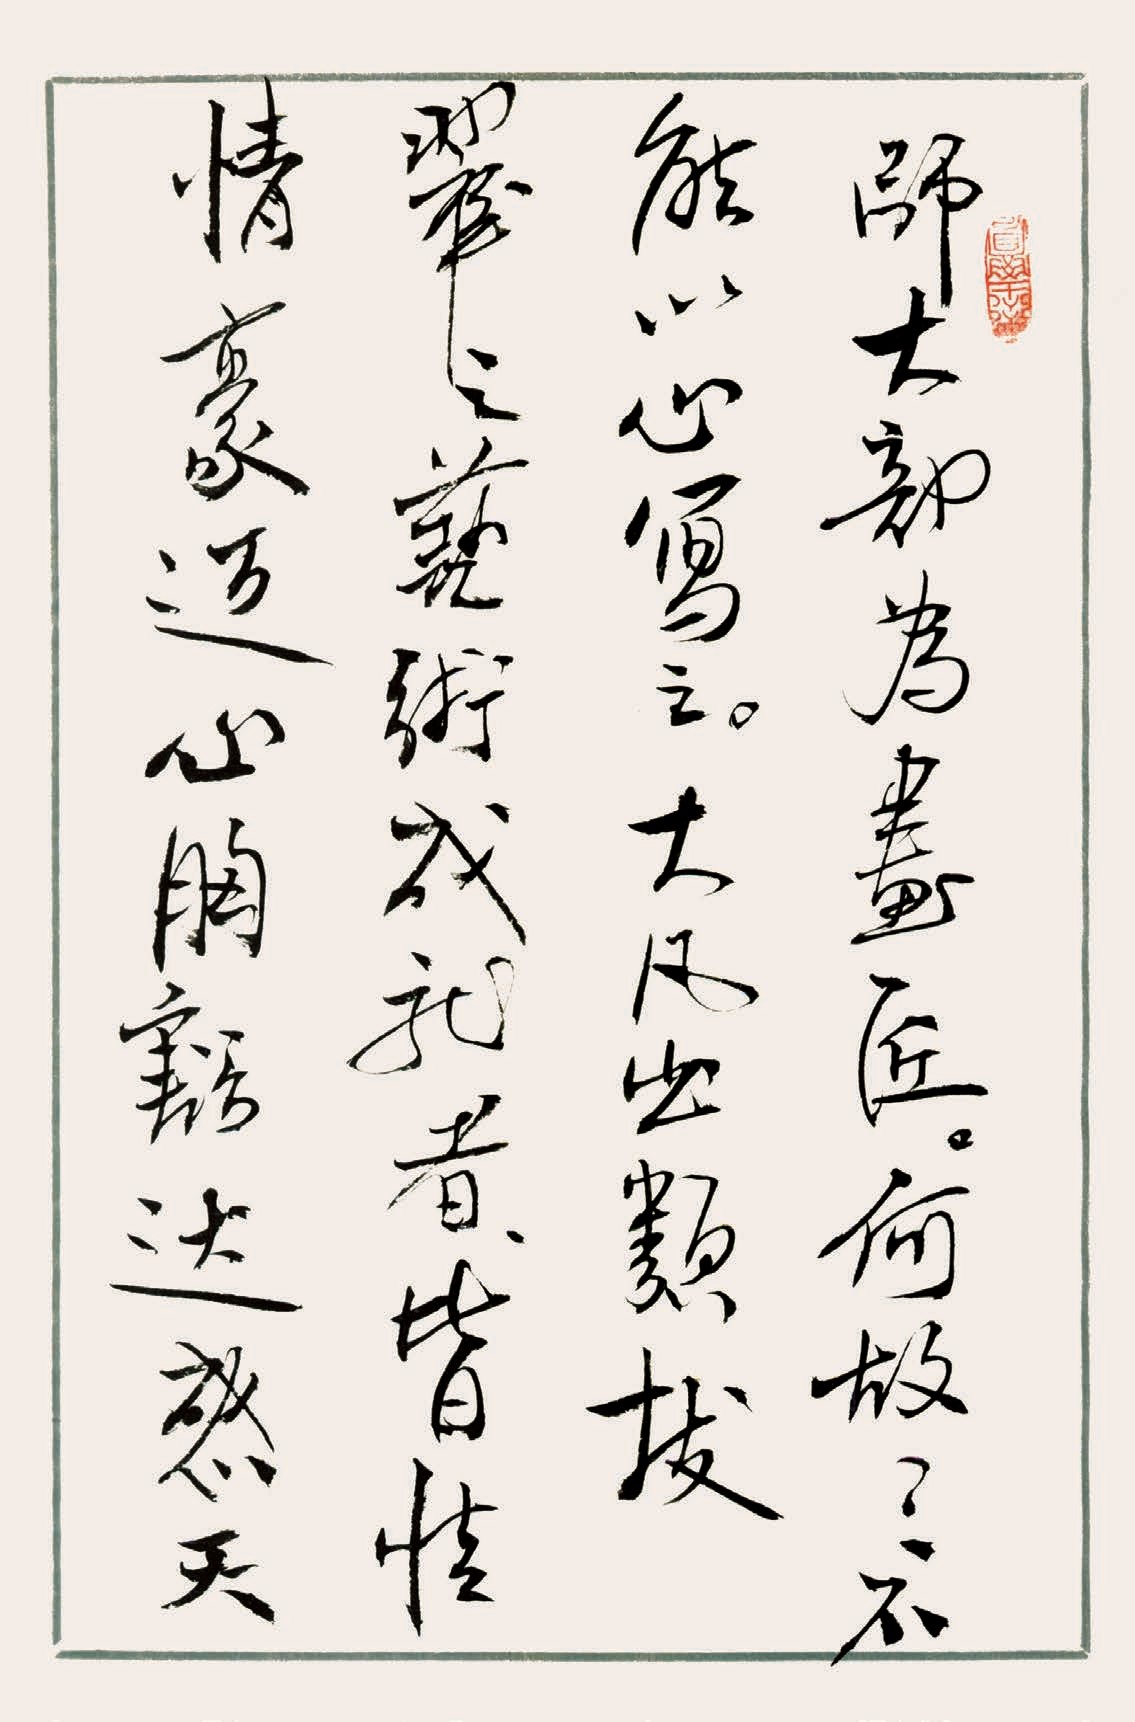 師大部為畫匠。何故不
能以心寫之。大凡出類拔
翠之藝術成就者、皆性
情豪迈心胸豁达感天